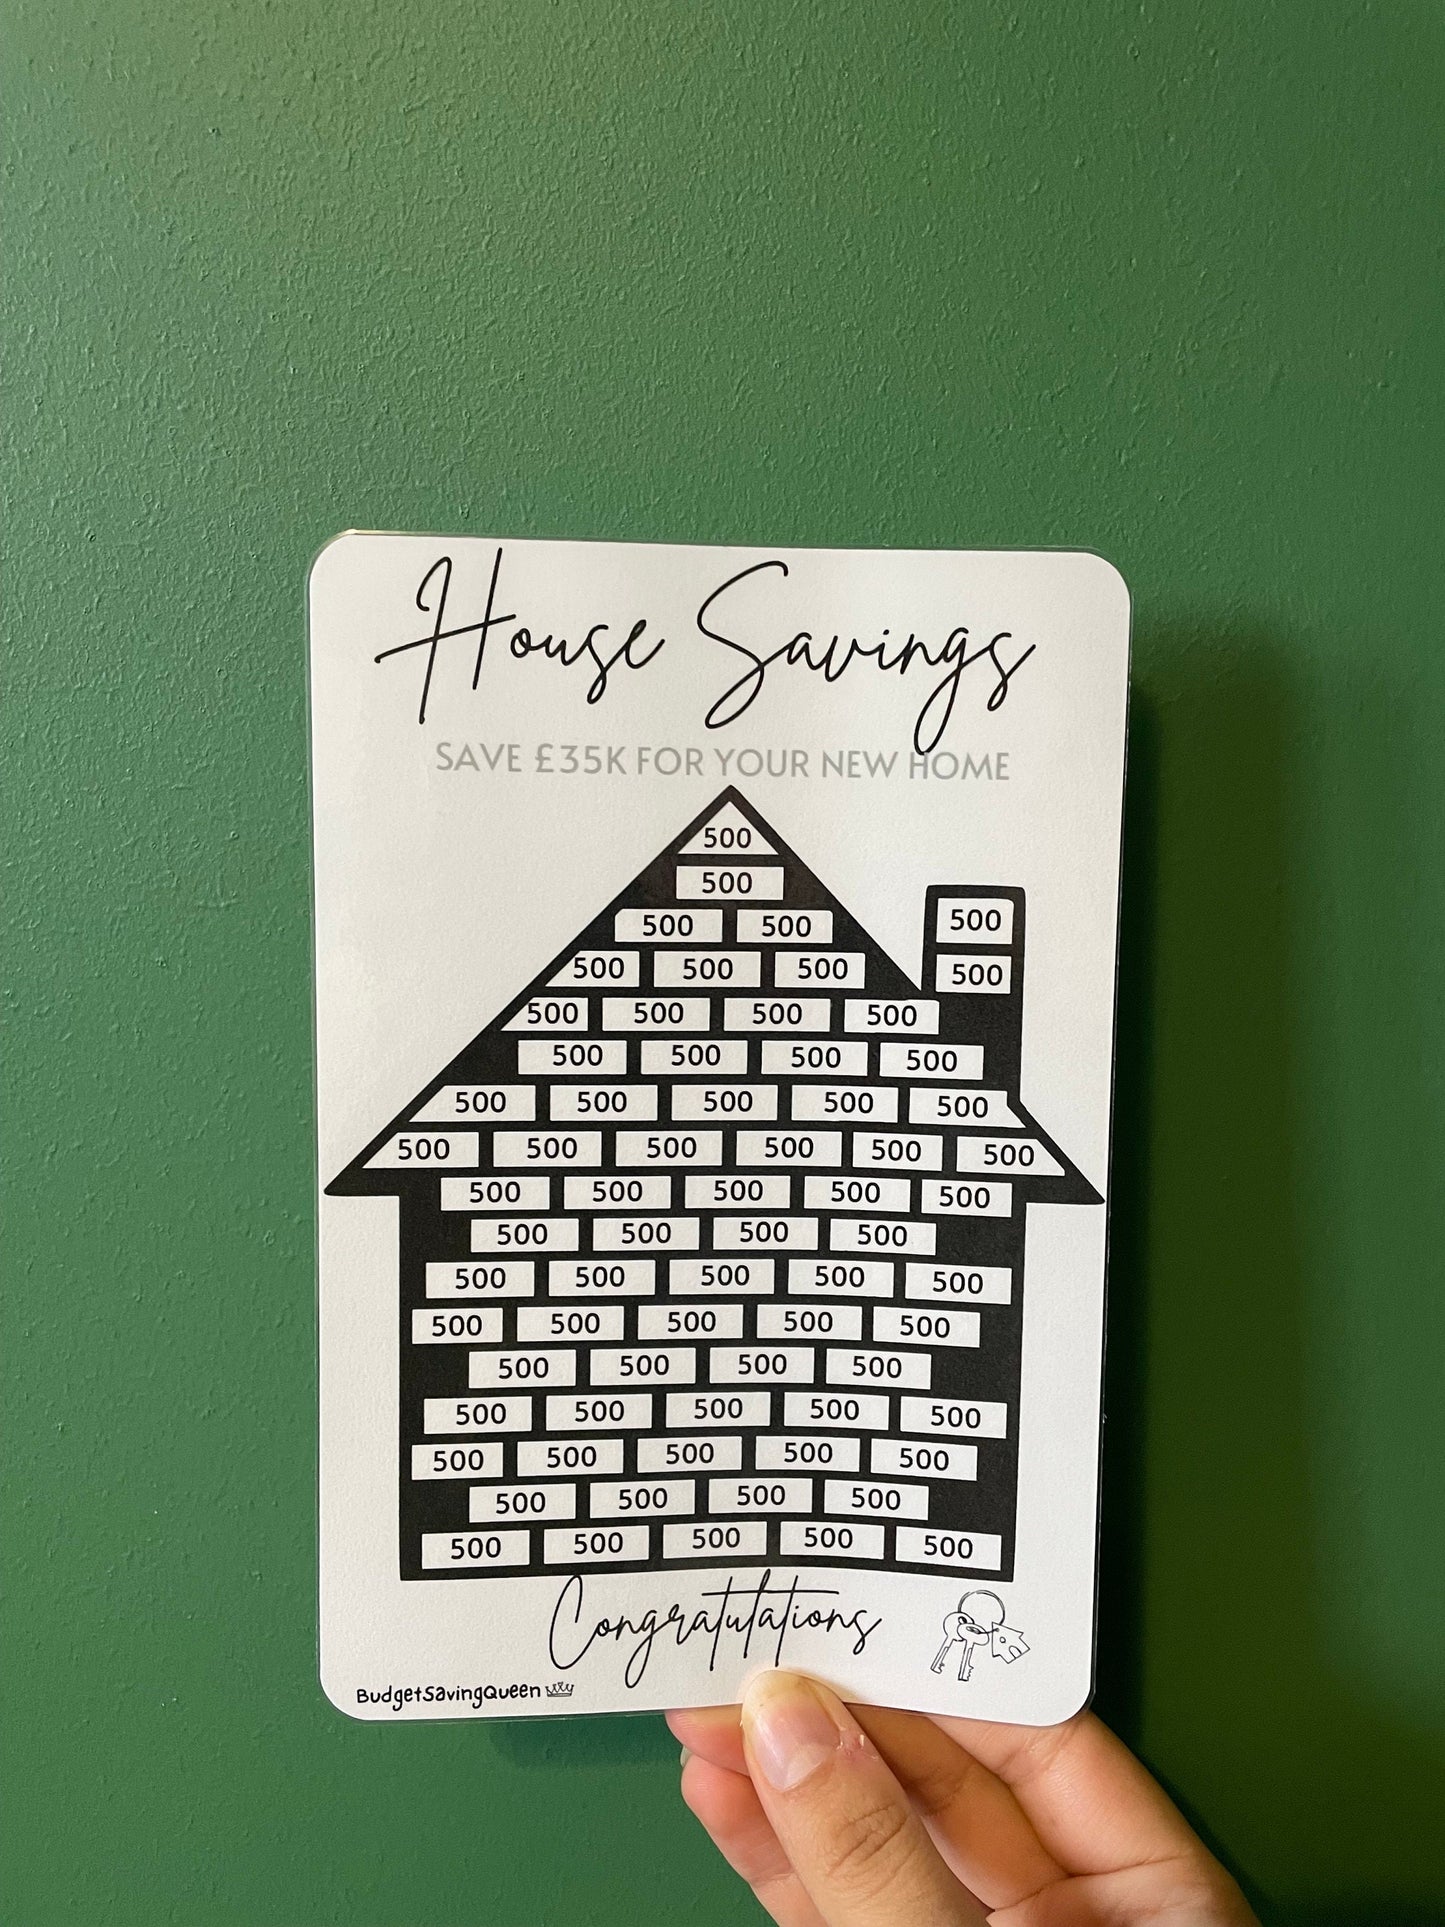 House Savings
SAVE £35K FOR YOUR NEW HOME
500
500
500 500 500
500 500 500 500
500 500 500 500
500 500 500 500
500 500 500 500 500
500 500 500 500 500 500
500 500 500 500 500
500 500 500 500
500 500 500 500 500
500 500 500 500 500
500 500 500 500
500 500 500 500 500
500 500 500 500 500
500 500 500 500
500 500 500 500 500
Congratulations
BudgetSavingQueen